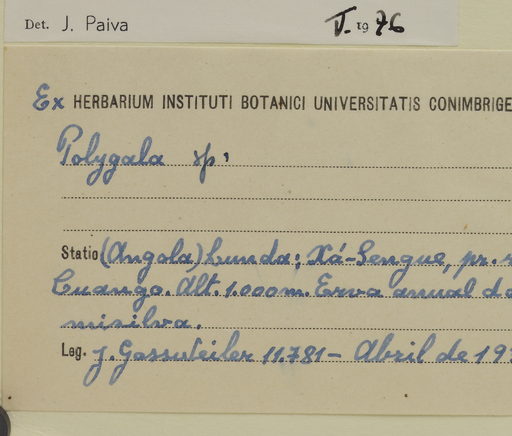 Det. J. Paiva V. 1976
Ex HERBARIUM INSTITUTI BOTANICI UNIVERSITATIS CONIMBRIGE
Polygala sp.
Statio (Angola) Lunda; Xá-Sengue, pr.
Cuango. Alt. 1.000m. Erva anual da
misilva.
Leg. J. Gossweiler 11.781 - Abril de 19